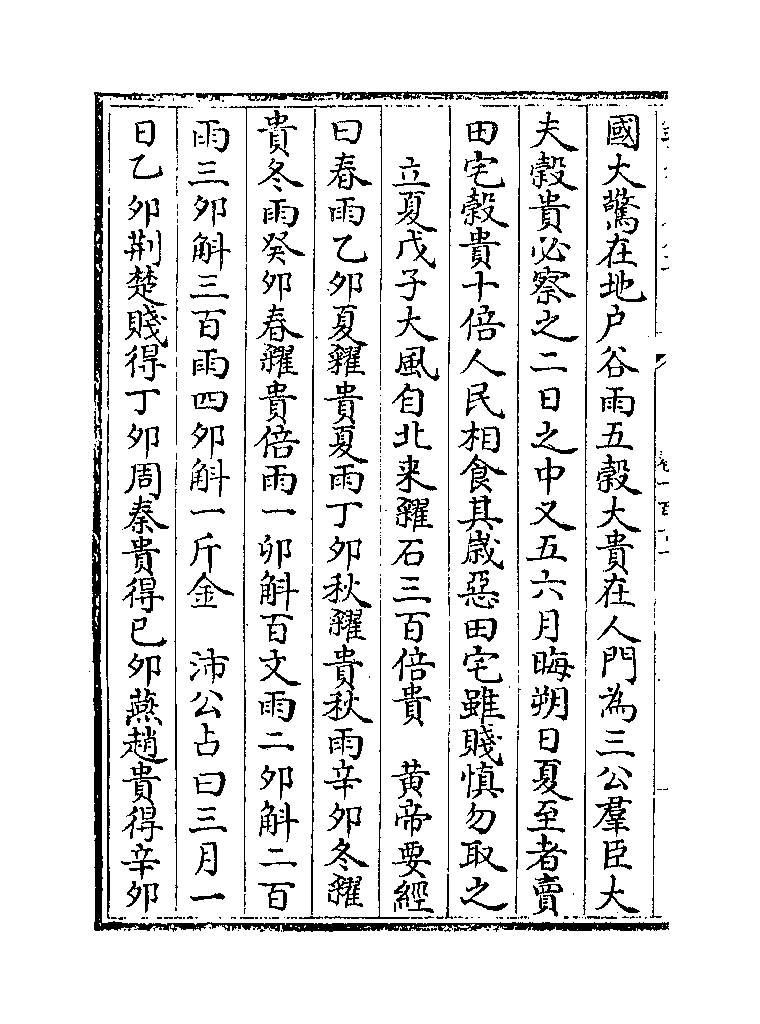 國大驚在地户谷雨五榖大貴在人門為三公羣臣大
夫榖貴必察之二日之中又五六月晦朔日夏至者賣
田宅榖貴十倍人民相食其歳惡田宅雖賤慎勿取之
立夏戊子大風自北来糴石三百倍貴　黄帝要經
曰春雨乙夘夏糴貴夏雨丁夘秋糴貴秋雨辛夘冬糴
貴冬雨癸夘春糴貴倍雨一卯斛百文雨二夘斛二百
雨三夘斛三百雨四夘斛一斤金　沛公占曰三月一
日乙夘荆楚賤得丁夘周秦貴得已夘燕趙貴得辛夘